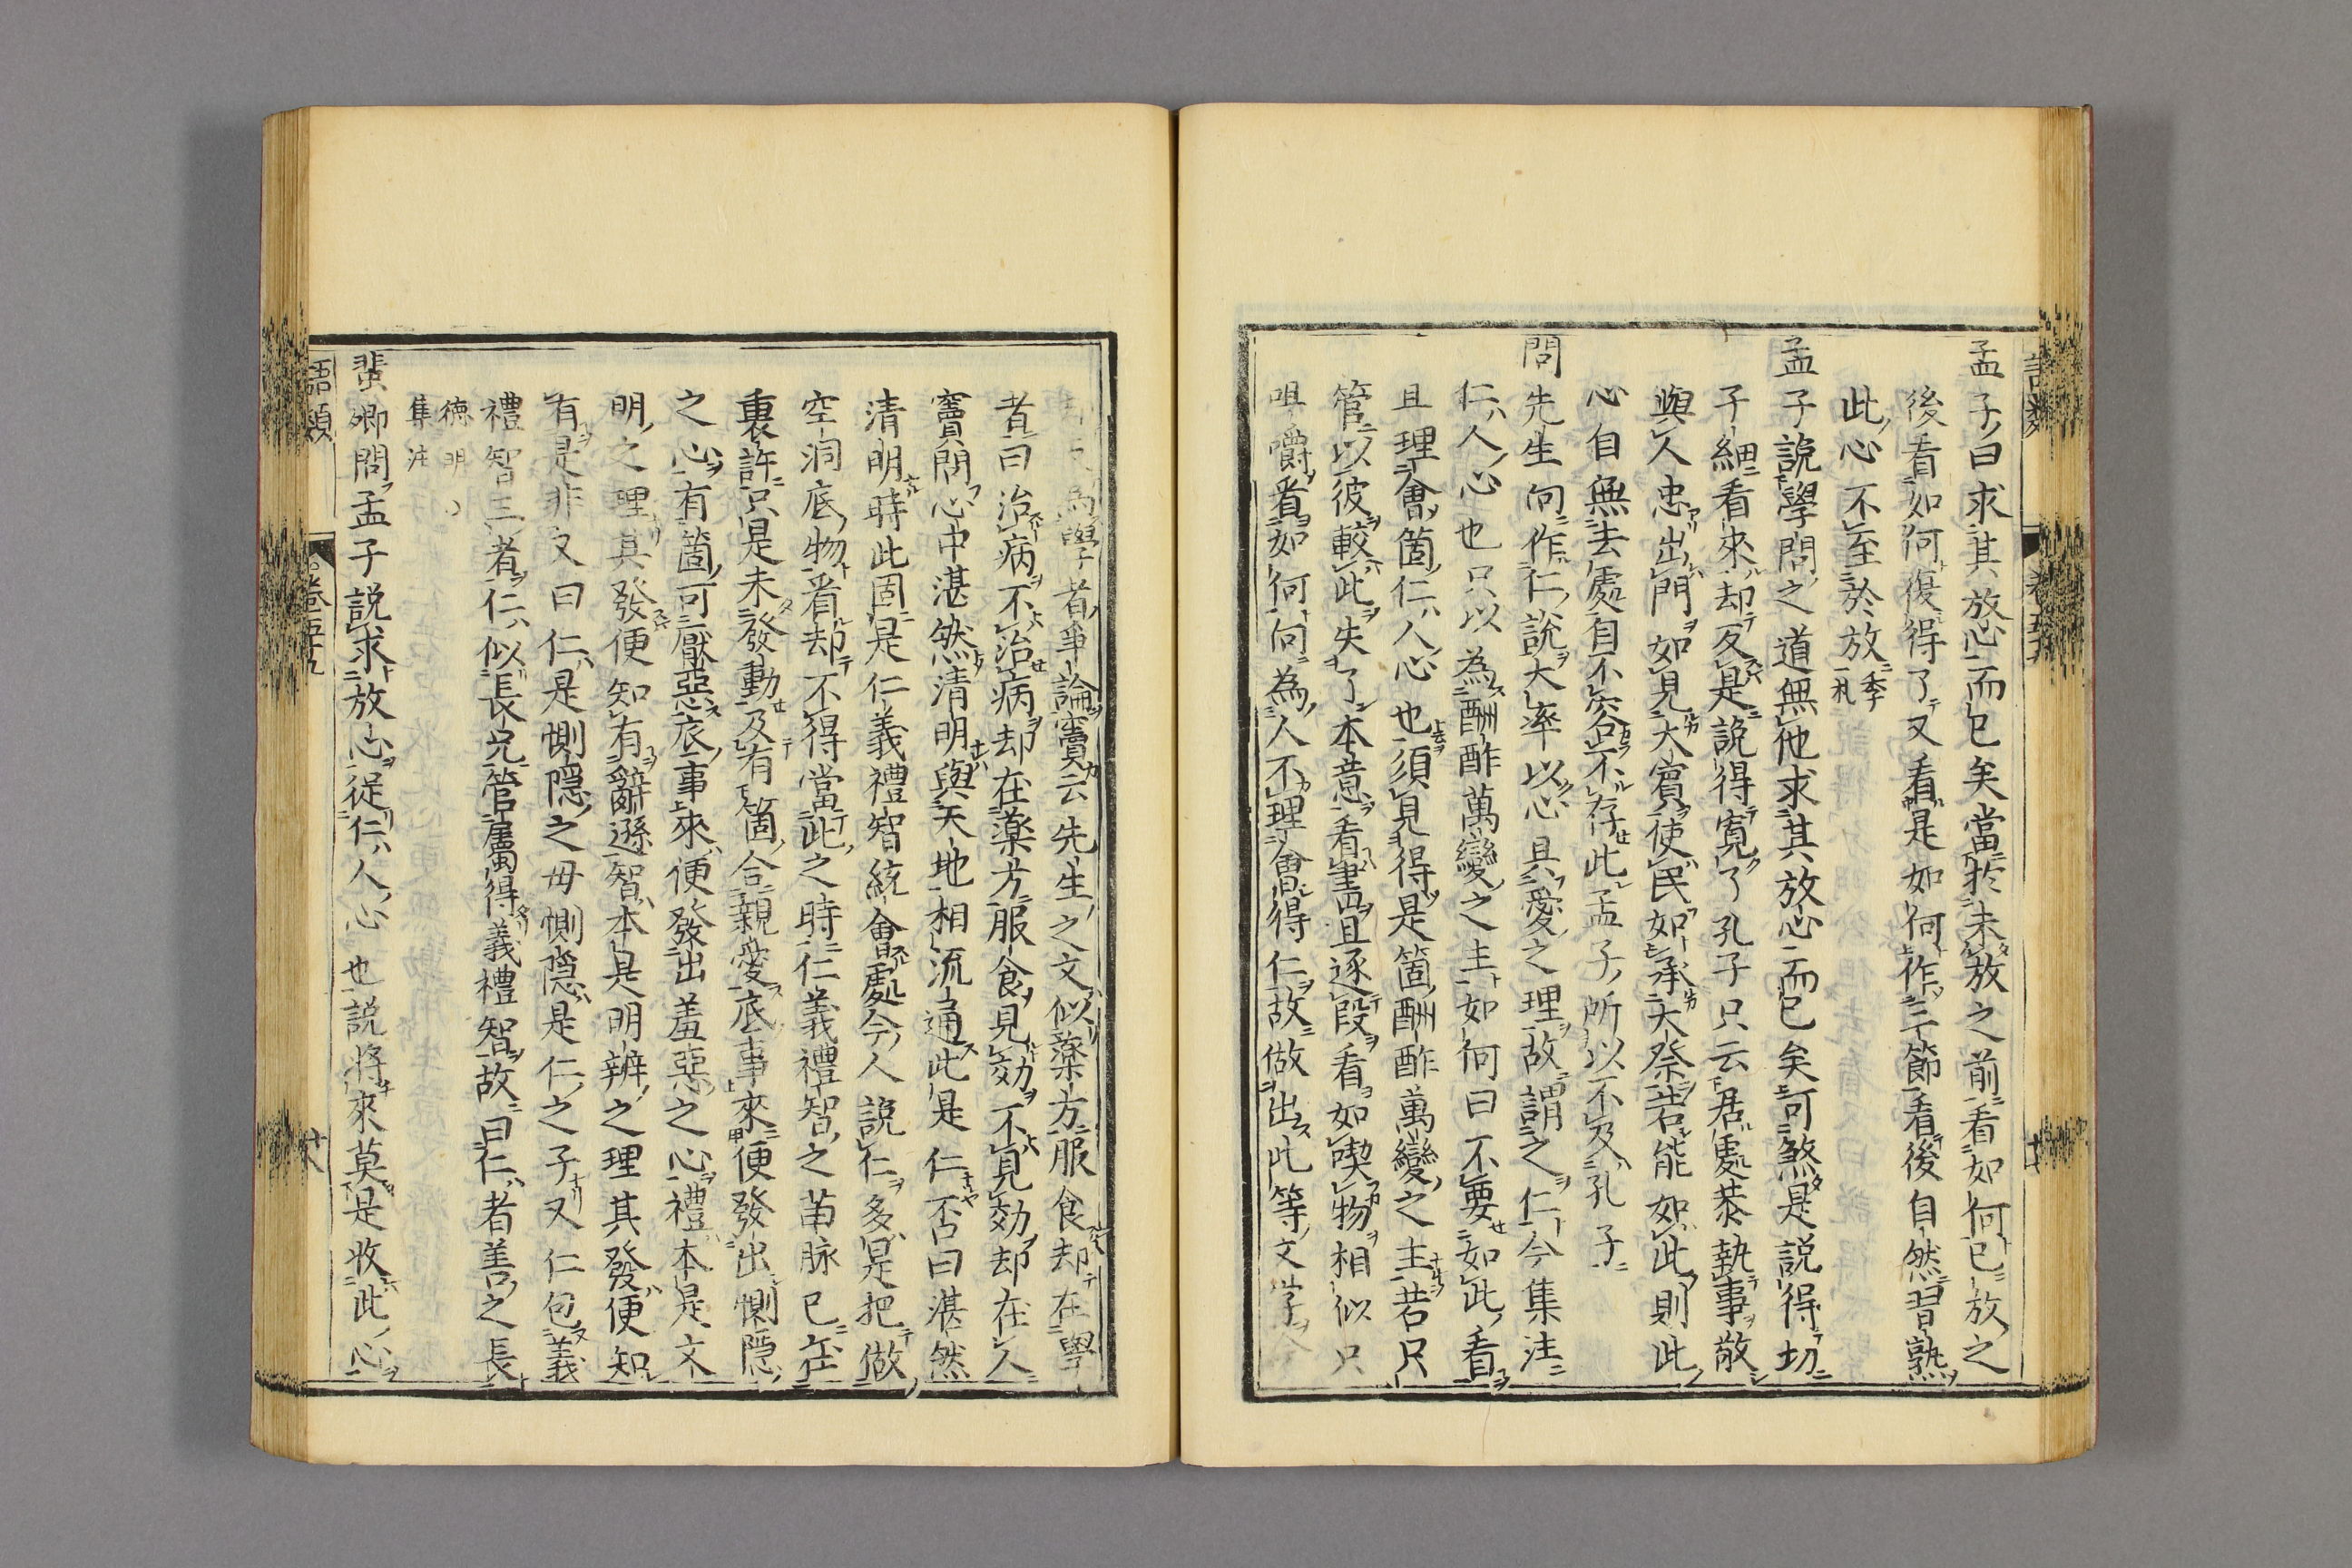 孟子曰求其放心而已矣當於未放之前看如何已放之
後看如何復得了又看是如何作三節看後自然習熟
此心不至於放季札
孟子說學問之道無他求其放心而已矣可煞是說得切
子細看來却反是說得寬了孔子只云居處恭執事敬
與人忠出門如見大賓使民如承大祭若能如此則此
心自無去處自不容不存此孟子所以不及孔子
問先生向作仁說大率以心具愛之理故謂之仁今集注
仁人心也只以為酬酢萬變之主如何曰不要如此看
且理會箇仁人心也須見得是箇酬酢萬變之主若只
管以彼較此失了本意看書且逐段看如喫物相似只
咀嚼看如何向為人不理會得仁故做出此等文字
為學者爭論竇云先生之文似藥方服食却在學
者曰治病不治病却在藥方服食見効不見効却在人
竇問心中湛然清明與天地相流通此是仁否曰湛然
清明時此固是仁義禮智統會處今人說仁多是把做
空洞底物看却不得當此之時仁義禮智之苗脉已在
裏許只是未發動及有箇合親愛底事來便發出惻隱
之心有箇可厭惡底事來便發出羞惡之心禮本是文
明之理其發便知有辭遜智本是明辨之理其發便知
有是非又曰仁是惻隱之母惻隱是仁之子又仁包義
禮智三者仁似長兄管屬得義禮智故曰仁者善之長
德明
集注
蜚卿問孟子說求放心從仁人心也說將來莫是收此心
語類
卷五十九